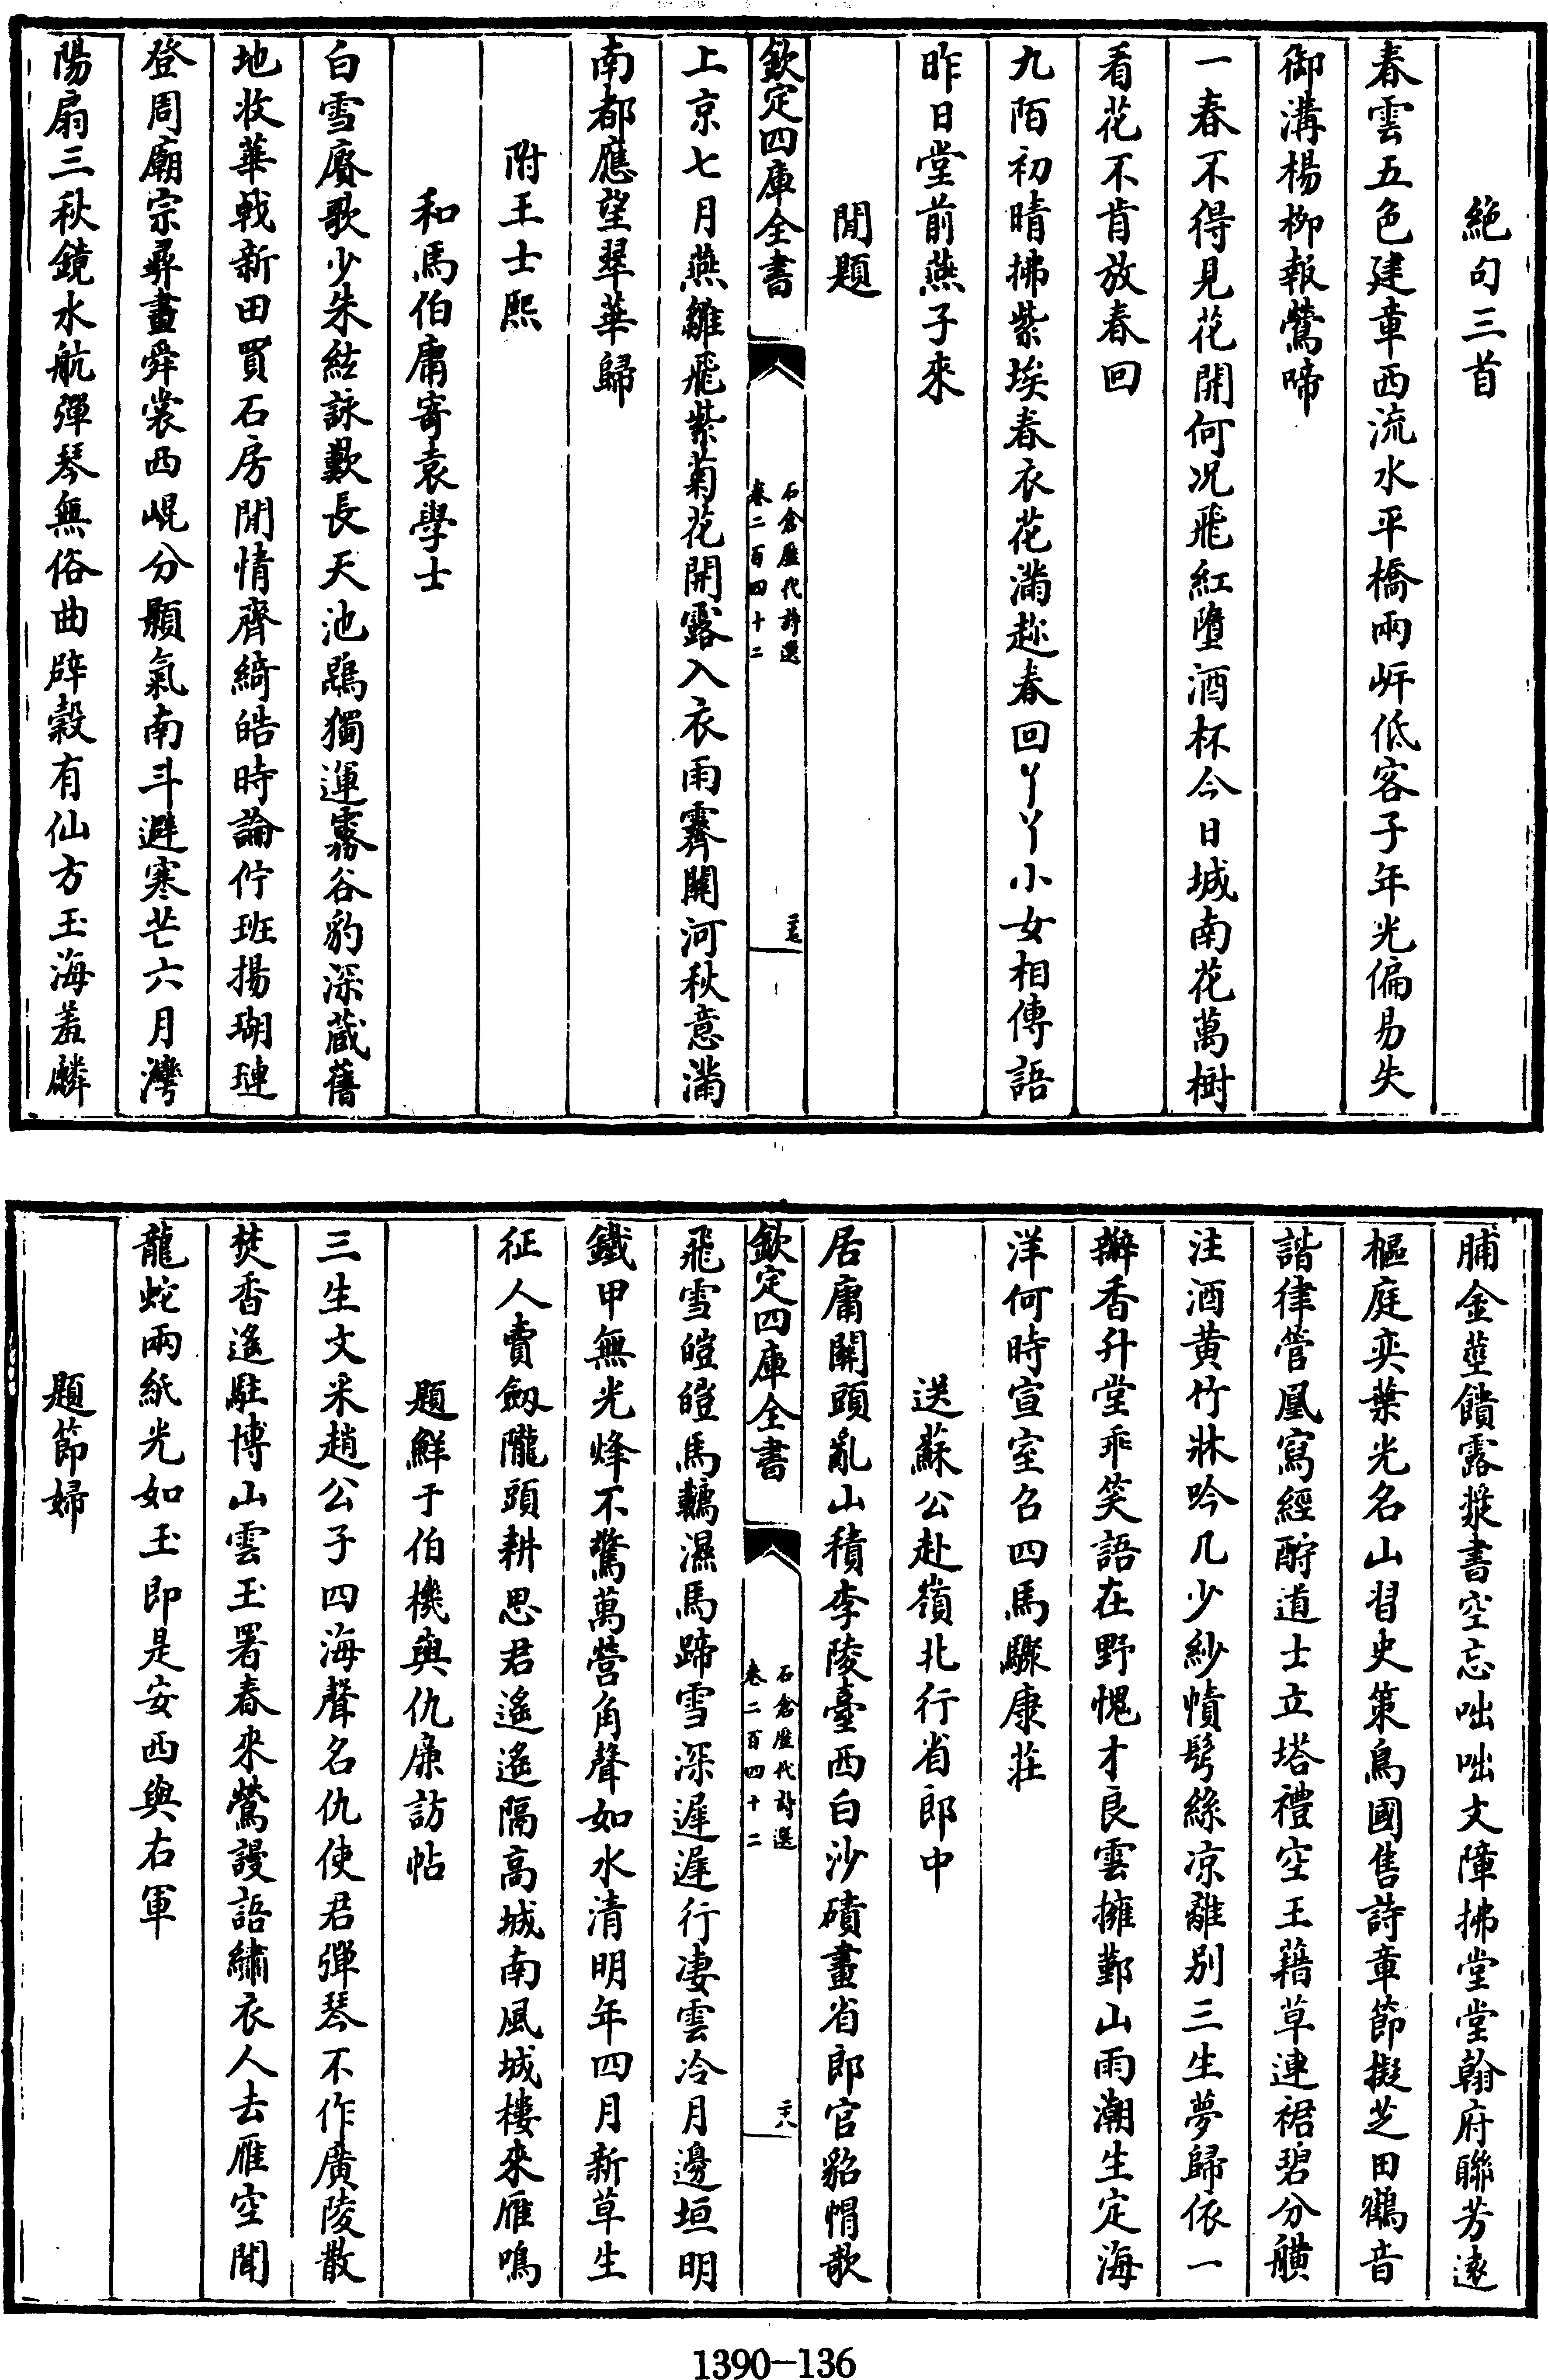 絶句三首
春雲五色建章西流水平橋兩岸低客子年光偏易失
御溝楊柳報鶯啼
一春不得見花開何况飛紅墮酒杯今日城南花萬樹
看花不肯放春回
九陌初晴拂紫埃春衣花滿趁春回丫丫小女相傳語
昨日堂前燕子來
閒題
欽定四庫全書
石倉歷代詩選
卷二百四十二
二七
上京七月燕雛飛紫菊花開露入衣雨霽關河秋意滿
南都應望翠華歸
附王士熙
和馬伯庸寄袁學士
白雪賡歌少朱絃詠歎長天池鵾獨運霧谷豹深藏舊
地收華戟新田買石房閒情齊綺皓時論佇班揚瑚璉
登周廟宗彝畫舜裳西崐分顥氣南斗避寒芒六月灣
陽扇三秋鏡水航彈琴無俗曲辟穀有仙方玉海羞麟
脯金莖饋露漿書空忘咄咄文障拂堂堂翰府聯芳遠
樞庭奕葉光名山習史策鳥國售詩章節擬芝田鶴音
諧律管凰寫經酹道士立塔禮空王藉草連裙碧分觵
注酒黄竹牀吟几少紗幘鬢絲凉離别三生夢歸依一
瓣香升堂乖笑語在野愧才良雲擁鄞山雨潮生定海
洋何時宣室召四馬驟康莊
送蘇公赴嶺北行省郎中
居庸關頭亂山積李陵臺西白沙磧畫省郎官貂帽欹
欽定四庫全書
石倉歷代詩選
卷二百四十二
二八
飛雪皚皚馬韉濕馬蹄雪深遲遲行凄雲冷月邊垣明
鐵甲無光烽不驚萬營角聲如水清明年四月新草生
征人賣劔隴頭耕思君遙遙隔高城南風城樓來雁鳴
題鮮于伯機與仇廉訪帖
三生文采趙公子四海聲名仇使君彈琴不作廣陵散
焚香遙駐博山雲玉署春來鶯謾語繡衣人去雁空聞
龍蛇兩紙光如玉即是安西與右軍
題節婦
1390-136